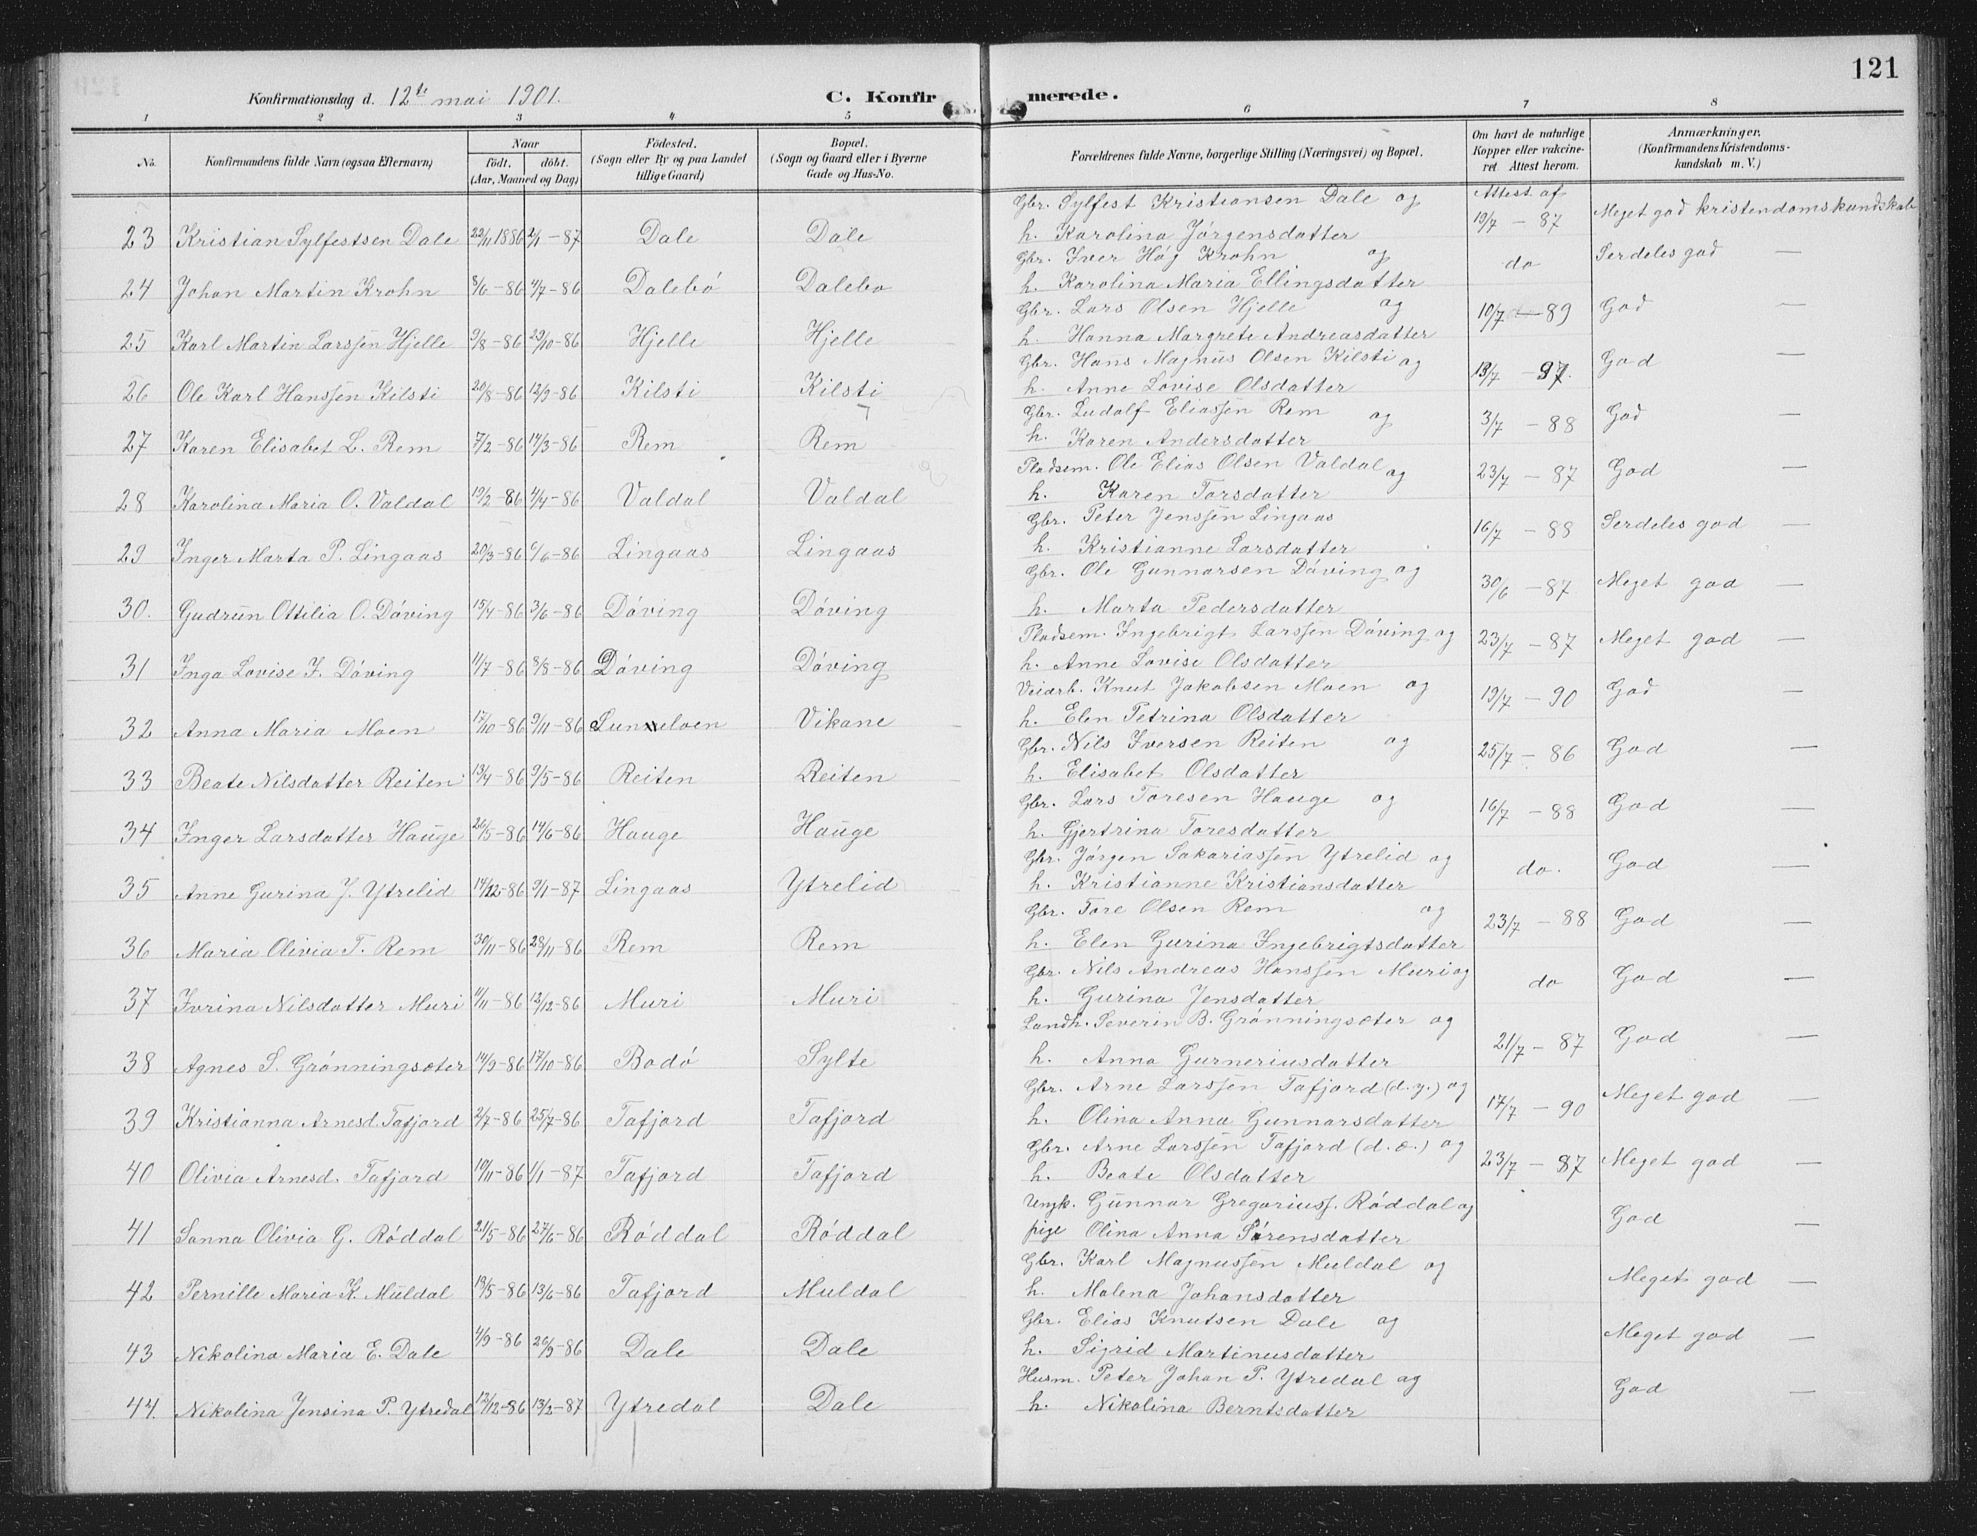 121
Konfirmationsdag d. 12te mai 1901. C. Konfirmerede.
1 2 3 4 5 6 7 8
No. Konfirmandens fulde Navn (ogsaa Efternavn) Naar født. døbt. (Aar, Maaned og Dag) Födested. (Sogn eller By og paa Landet tillige Gaard) Bopæl. (Sogn og Gaard eller i Byerne Gade og Hus-No. Forældrenes fulde Navne, borgerlige Stilling (Næringsvei) og Bopæl. Om havt de naturlige Kopper eller vakcineret Attest herom. Anmærkninger. (Konfirmandens Kristendomskundskab m. V.)
Gbr. Sylfest Kristiansen Dale og Attest af
23 Kristian Sylfestsen Dale 22/11 1886 2/1-87 Dale Dale h. Karolina Jørgensdatter 19/7 - 87 Meget god kristendomskundskab
Gbr. Iver Høg Krohn og
24 Johan Martin Krohn 8/6-86 4/7-86 Dalebö Dalebø h. Karolina Maria Ellingsdatter do Serdeles god —
Gbr. Lars Olsen Hjelle og
25 Karl Martin Larssen Hjelle 9/8-86 29/10-86 Hjelle Hjelle h. Hanna Margrete Andreasdatter 10/7 - 89 God —
Gbr. Hans Magnus Olsen Kilsti og
26 Ole Karl Hanssen Kilsti 20/8-86 12/9-86 Kilsti Kilsti h. Anne Lovise Olsdatter 19/7 - 97. God —
Gbr. Ludolf Eliassen Rem og
27 Karen Elisabet L. Rem 7/2-86 14/3-86 Rem Rem h. Karen Andersdatter 3/7 - 88 God —
Pladsem. Ole Elias Olsen Valdal og
28 Karolina Maria O. Valdal 19/2-86 4/4-86 Valdal Valdal h. Karen Torsdatter 23/7 - 87 God —
Gbr. Peter Jenssen Lingaas
29 Inger Marta P. Lingaas 20/3-86 6/6-86 Lingaas Lingaas h. Kristianne Larsdatter 16/7 - 88 Serdeles god —
Gbr. Ole Gunnarsen Döving og
30. Gudrün Ottilia O. Döving 15/4-86 3/6-86 Döving Döving h. Marta Pedersdatter 30/6 - 87 Meget god —
Pladsem. Ingebrigt Larssen Döving og
31 Inga Lovise I. Döving 11/7-86 8/8-86 Döving Döving h. Anne Lovise Olsdatter 23/7 - 87 Meget god —
Veiarb. Knut Jakobsen Moen og
32 Anna Maria Moen 17/10-86 9/11-86 Vikane h. Elen Petrina Olsdatter 19/7 - 90 God —
Gbr. Nils Iversen Reiten og
33 Beate Nilsdatter Reiten 13/4-86 9/5-86 Reiten Reiten h. Elisabet Olsdatter 25/7 - 86 God —
Gbr. Lars Toresen Hauge og
34 Inger Larsdatter Hauge 26/5-86 14/6-86 Hauge Hauge h. Gjertrina Toresdatter 16/7 - 88 God —
Gbr. Jörgen Sakariassen Ytrelid og
35 Anne Gurina J. Ytrelid 14/12-86 9/1-87 Lingaas Ytrelid h. Kristianne Kristiansdatter do. God —
Gbr. Tore Olsen Rem og
36 Maria Olivia T. Rem 30/11-86 28/11-86 Rem Rem h. Elen Gurina Ingebrigtsdatter 23/7 - 88 God —
Gbr. Nils Andreas Hanssen Muri og
37 Ivrina Nilsdatter Muri 11/11-86 12/12-86 Muri Muri h. Gurina Jensdatter do God —
Landh. Severin B. Grönningsæter og
38 Agnes S. Grönningsæter 14/9-86 17/10-86 Bodö Sylte h. Anna Gurneriusdatter 21/7 - 87 God —
Gbr. Arne Larssen Tafjord (d. y.) og
39 Kristianna Arnesd. Tafjord 2/7-86 25/7-86 Tafjord Tafjord h. Olina Anna Gunnarsdatter 17/7 - 90 Meget god —
Gbr. Arne Larssen Tafjord (d. æ.) og
40 Olivia Arnesd. Tafjord 19/11-86 1/1-87 Tafjord Tafjord h. Beate Olsdatter 23/7 - 87 Meget god —
Ungk. Gunnar Gregoriuss. Röddal og
41 Sanna Olivia G. Röddal 21/5-86 27/6-86 Röddal Röddal pige Olina Anna Sörensdatter God —
Gbr. Karl Magnussen Muldal og
42 Pernille Maria K. Muldal 19/5-86 13/6-86 Tafjord Muldal h. Malena Johansdatter Meget god —
Gbr. Elias Knutsen Dale og
43 Nikolina Maria E. Dale 4/9-86 26/9-86 Dale Dale h. Sigrid Martinusdatter Meget god —
Husm. Peter Johan P. Ytredal og
44. Nikolina Jensina P. Ytredal 13/12-86 13/2-87 Ytredal Dale h. Nikolina Berntsdatter God —